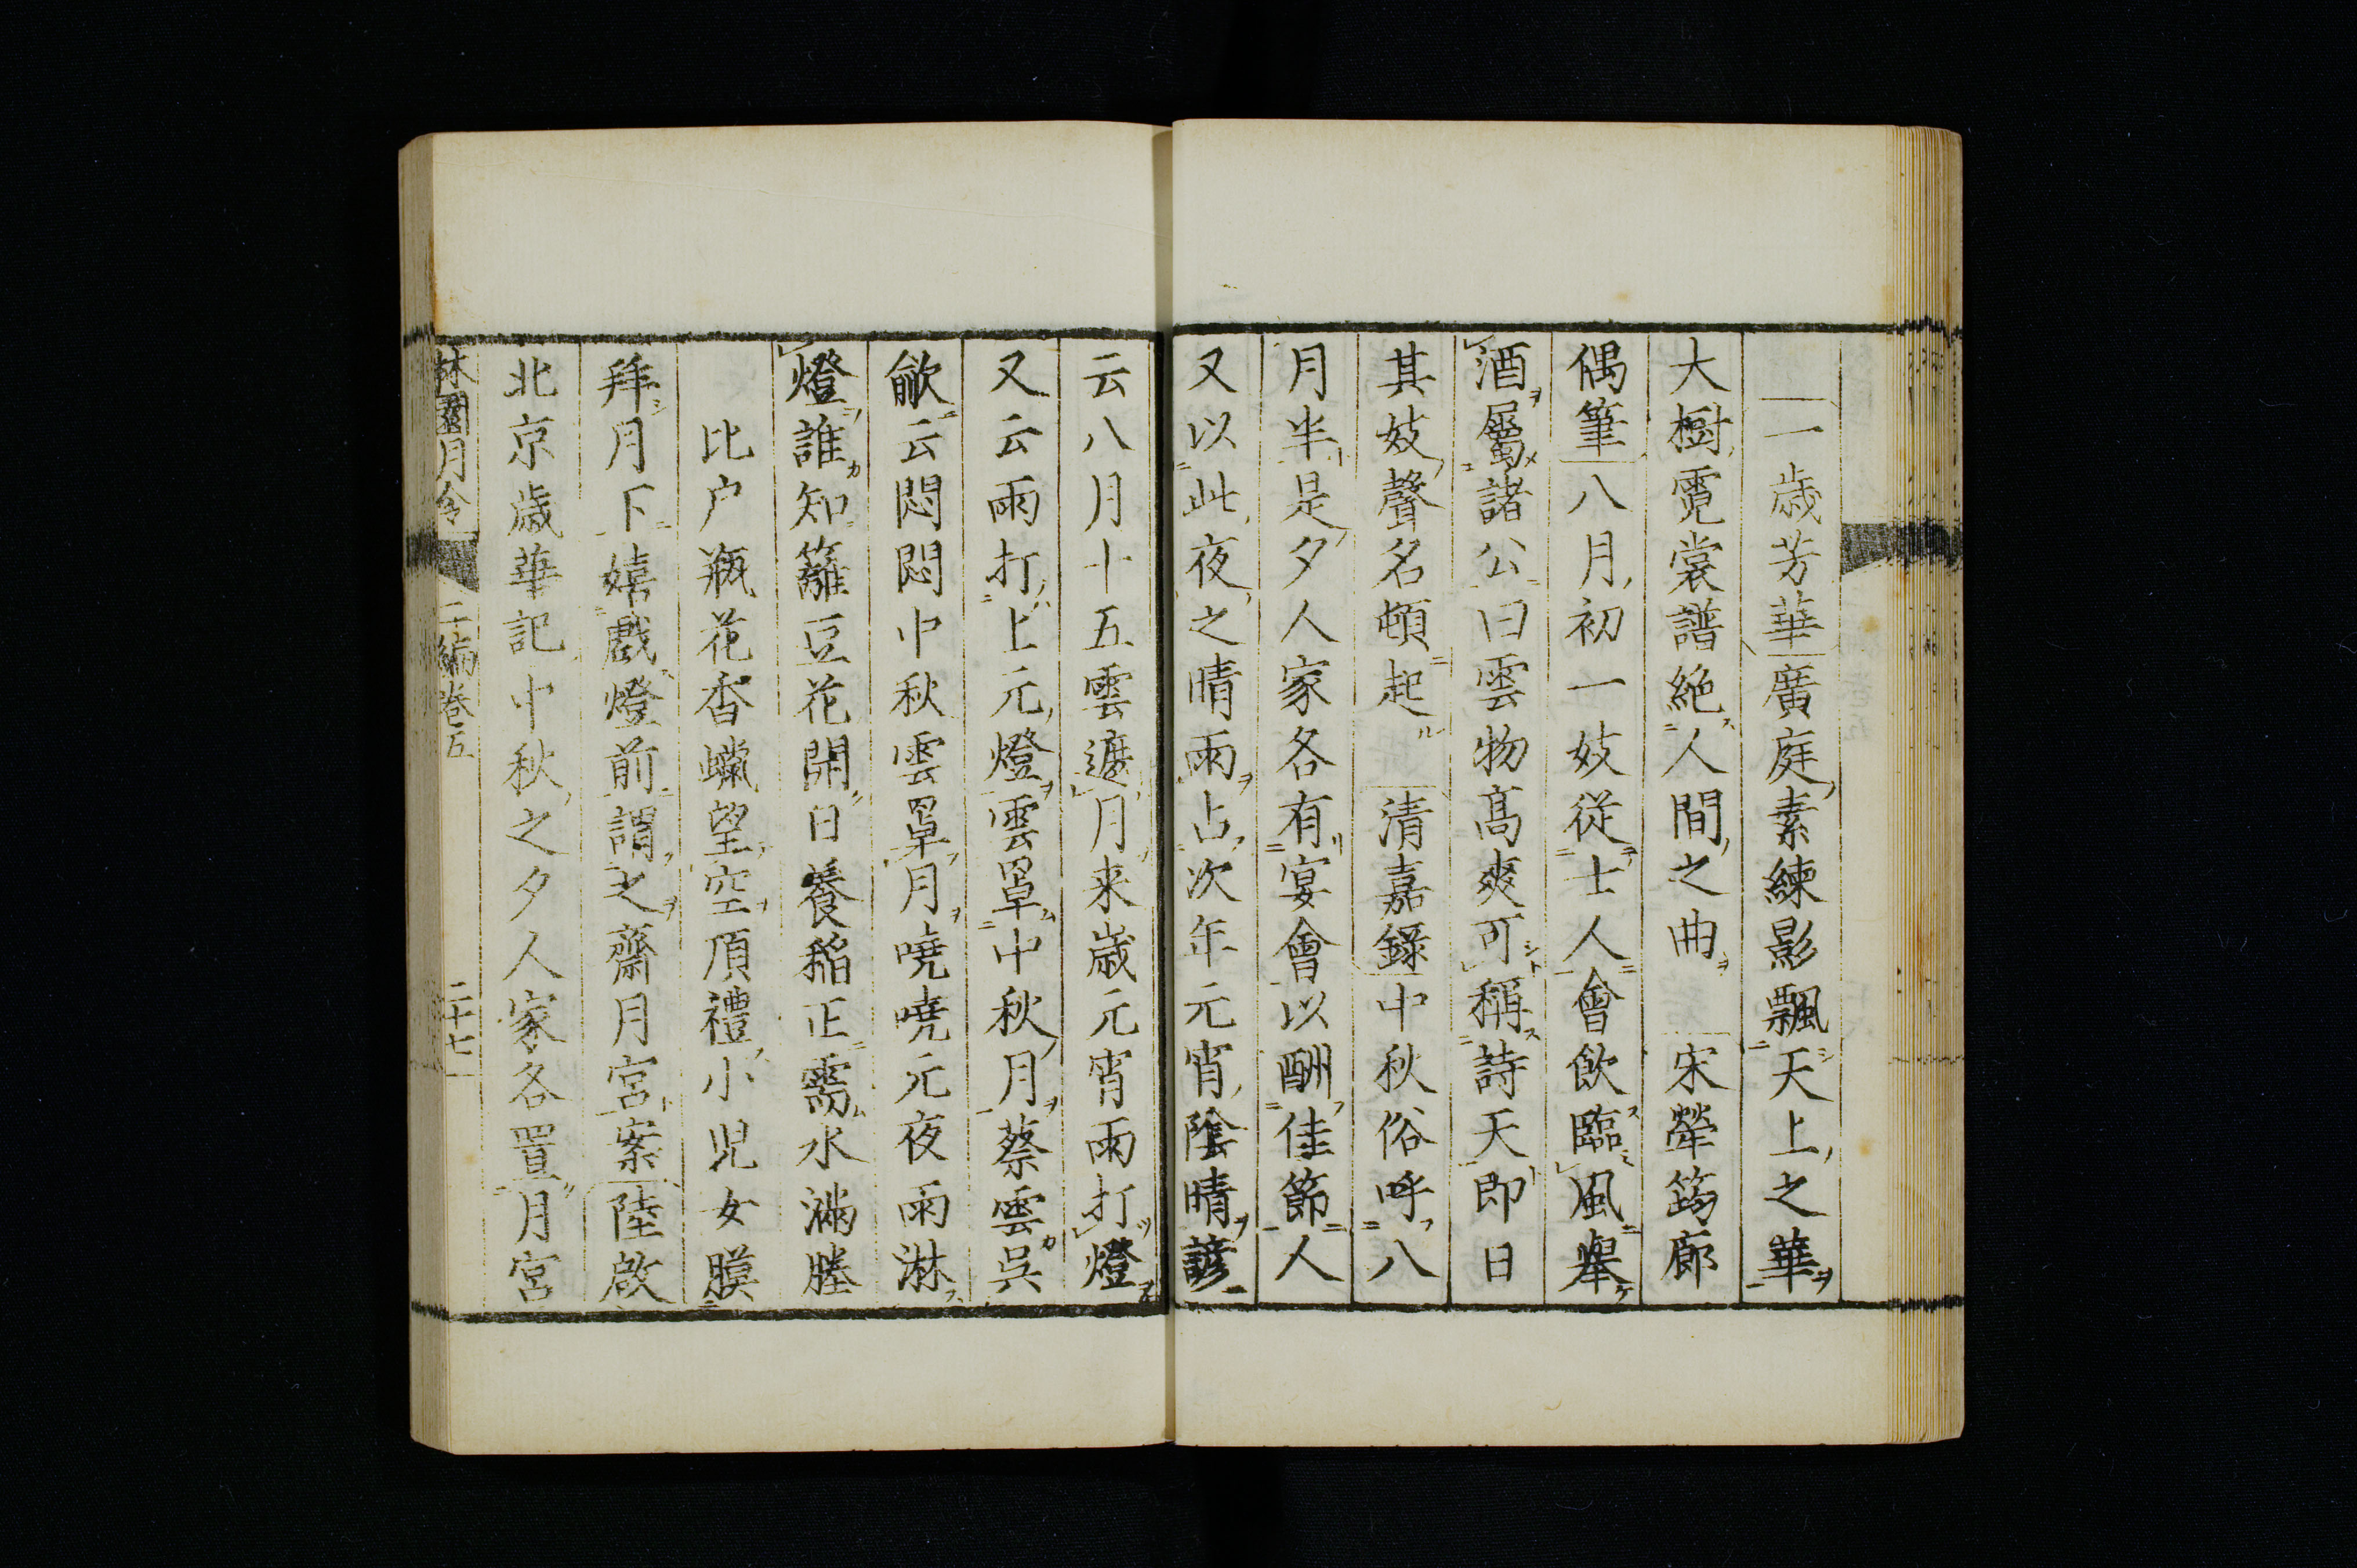 一歳芳華廣庭素練影飄天上之華
大樹霓裳譜絶人間之曲 宋犖筠廊
偶筆八月初一妓従士人會飲臨風舉
酒屬諸公曰雲物髙爽可稱詩天即日
其妓聲名頓起 清嘉錄中秋俗呼八
月半是夕人家各有宴會以酬佳節人
又以此夜之晴雨占次年元宵陰晴諺
云八月十五雲遮月来歳元宵雨打燈
又云雨打上元燈雲罩中秋月蔡雲呉
歈云悶悶中秋雲罩月嘵嘵元夜雨淋
燈誰知籬豆花開日養稻正需水滿塍
比户瓶花香蠟望空頂禮小児女膜
拜月下嬉戲燈前謂之齋月宮案陸啟
北京歳華記中秋之夕人家各置月宮
林園月令 二編卷五 二十七